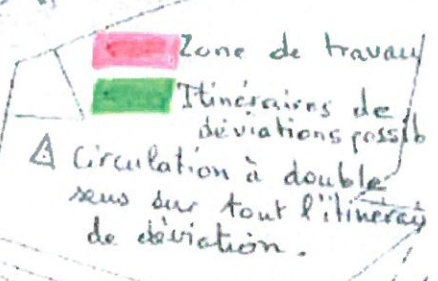 Zone de travau
Itinéraires de
déviations possib
⚠ Circulation à double
sens sur tout l'itinérai
de déviation.